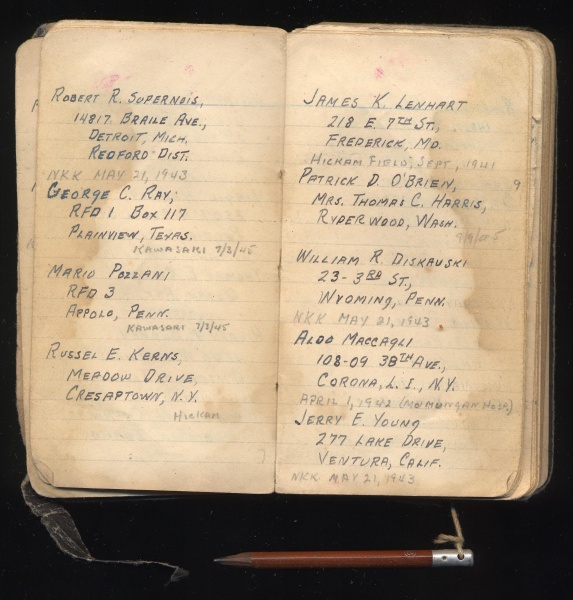 ROBERT R. SUPERNOIS,
14817 BRAILE AVE.,
DETROIT, MICH.
REDFORD DIST.
NKK MAY 21, 1943
GEORGE C. RAY,
RFD 1 BOX 117
PLAINVIEW, TEXAS.
KAWASAKI 7/3/45
MARIO POZZANI
RFD 3
APPOLO, PENN.
KAWASAKI 7/3/45
RUSSEL E. KERNS,
MEADOW DRIVE,
CRESAPTOWN, N.Y.
HICKAM
JAMES K. LENHART
218 E. 7TH ST.,
FREDERICK, MD.
HICKAM FIELD, SEPT, 1941
PATRICK D. O'BRIEN,
MRS. THOMAS C. HARRIS,
RYDERWOOD, WASH.
WILLIAM R. DISKAUSKI
23-3RD ST.,
WYOMING, PENN.
NKK MAY 21, 1943
ALDO MACCAGLI
108-09 38TH AVE.,
CORONA, L.I., N.Y.
APRIL 1, 1942 (MOMUNGAN HOSP.)
JERRY E. YOUNG
277 LAKE DRIVE,
VENTURA, CALIF.
NKK MAY 21, 1943